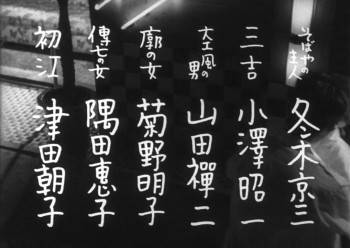 そばやの主人 冬木京三
三吉 小澤昭一
大工風の男 山田禪二
廓の女 菊野明子
傳七の女 隅田惠子
初江 津田朝子